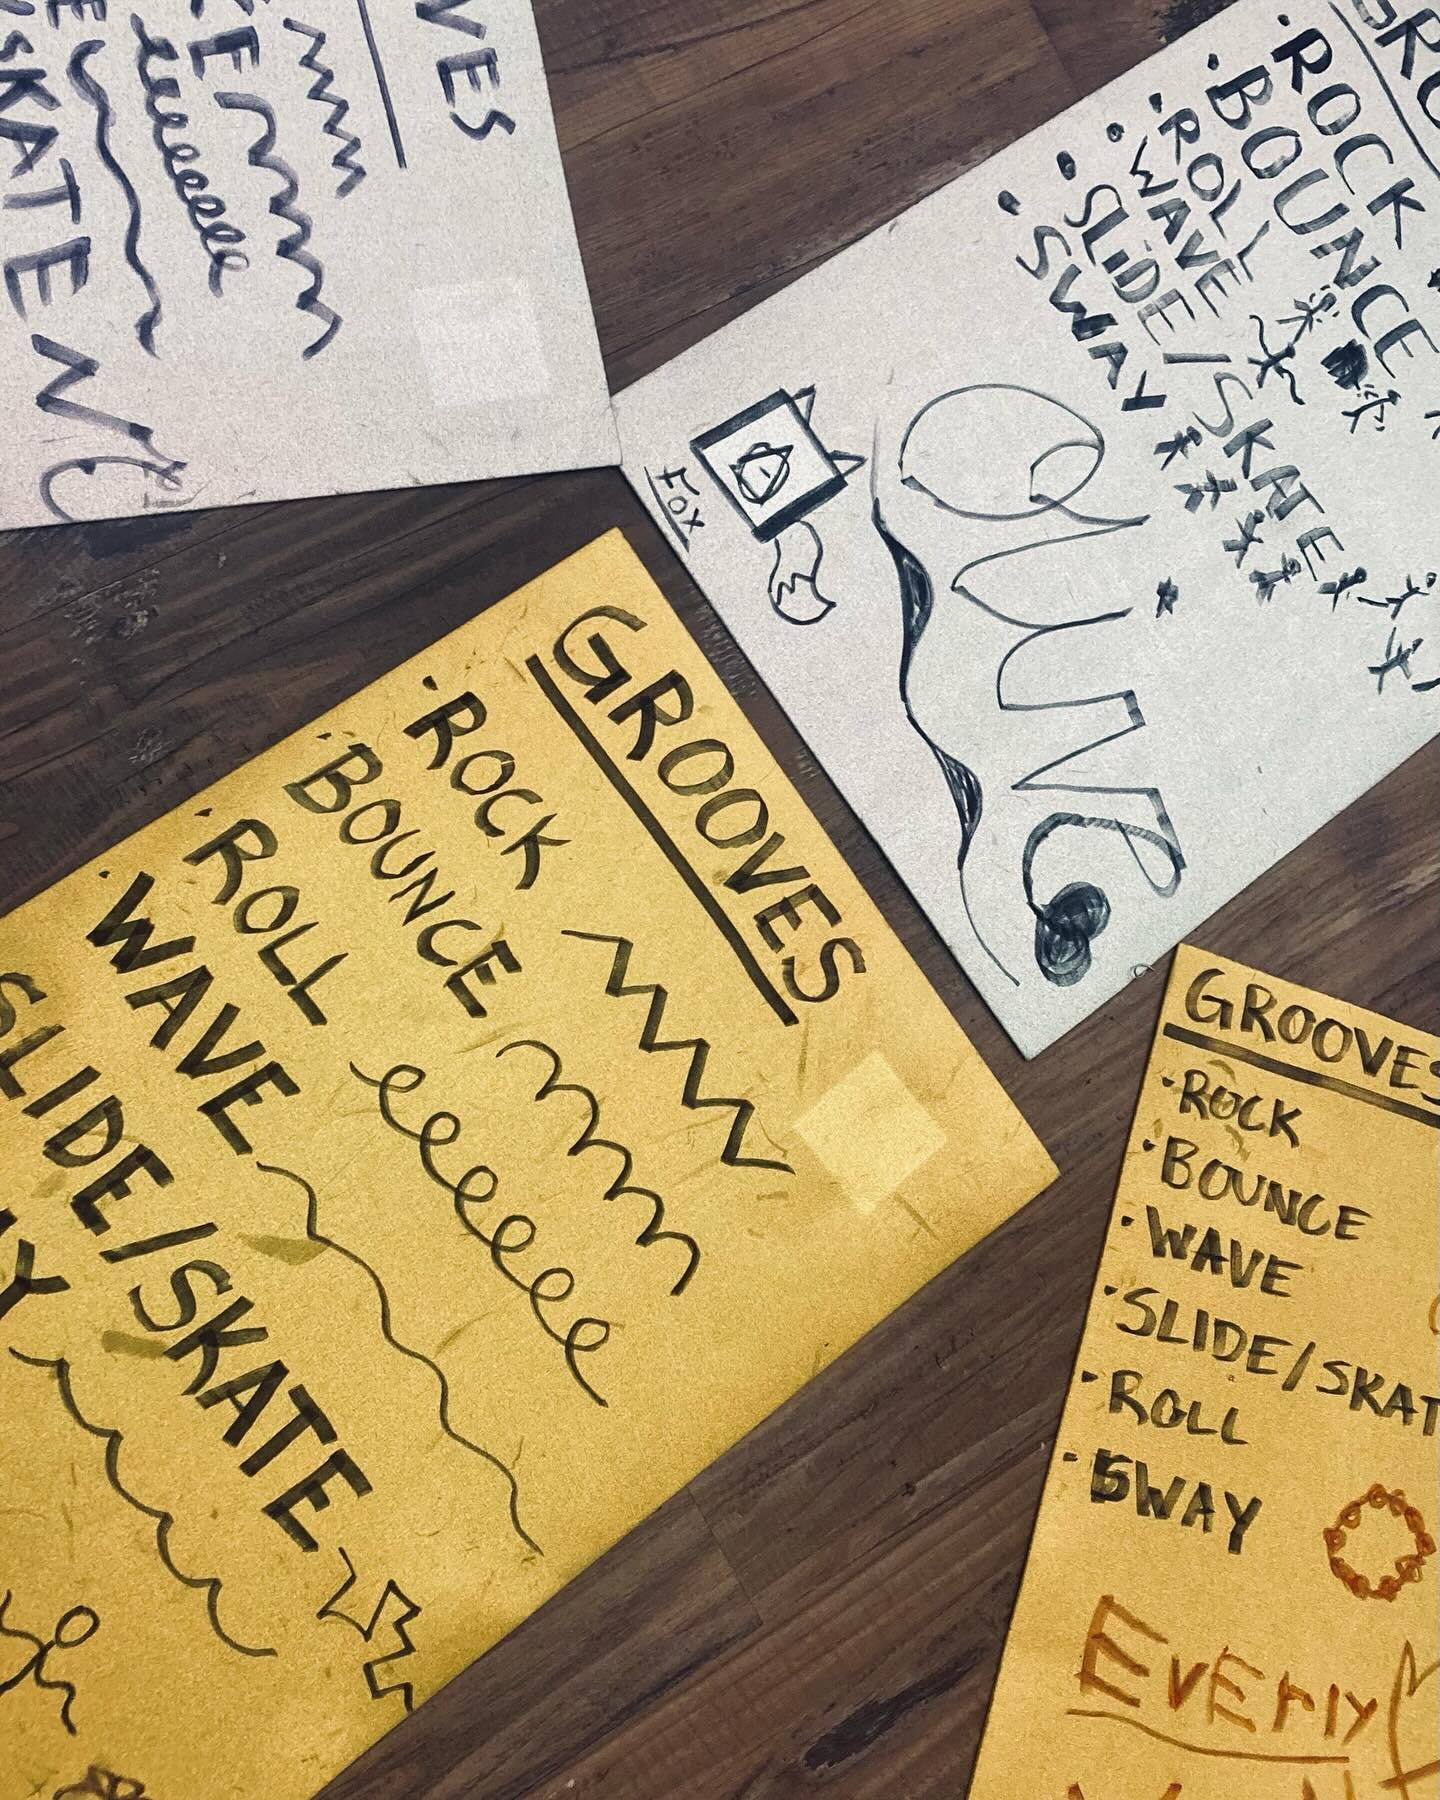 VES
E
SKATE
GRO
· ROCK
· BOUNCE
· ROLL
· WAVE
· SLIDE/SKATE
· SWAY
FOX
GROOVES
· ROCK
· BOUNCE
· ROLL
· WAVE
SLIDE/SKATE
Y
GROOVES
· ROCK
· BOUNCE
· WAVE
· SLIDE/SKAT
· ROLL
· SWAY
EvErly